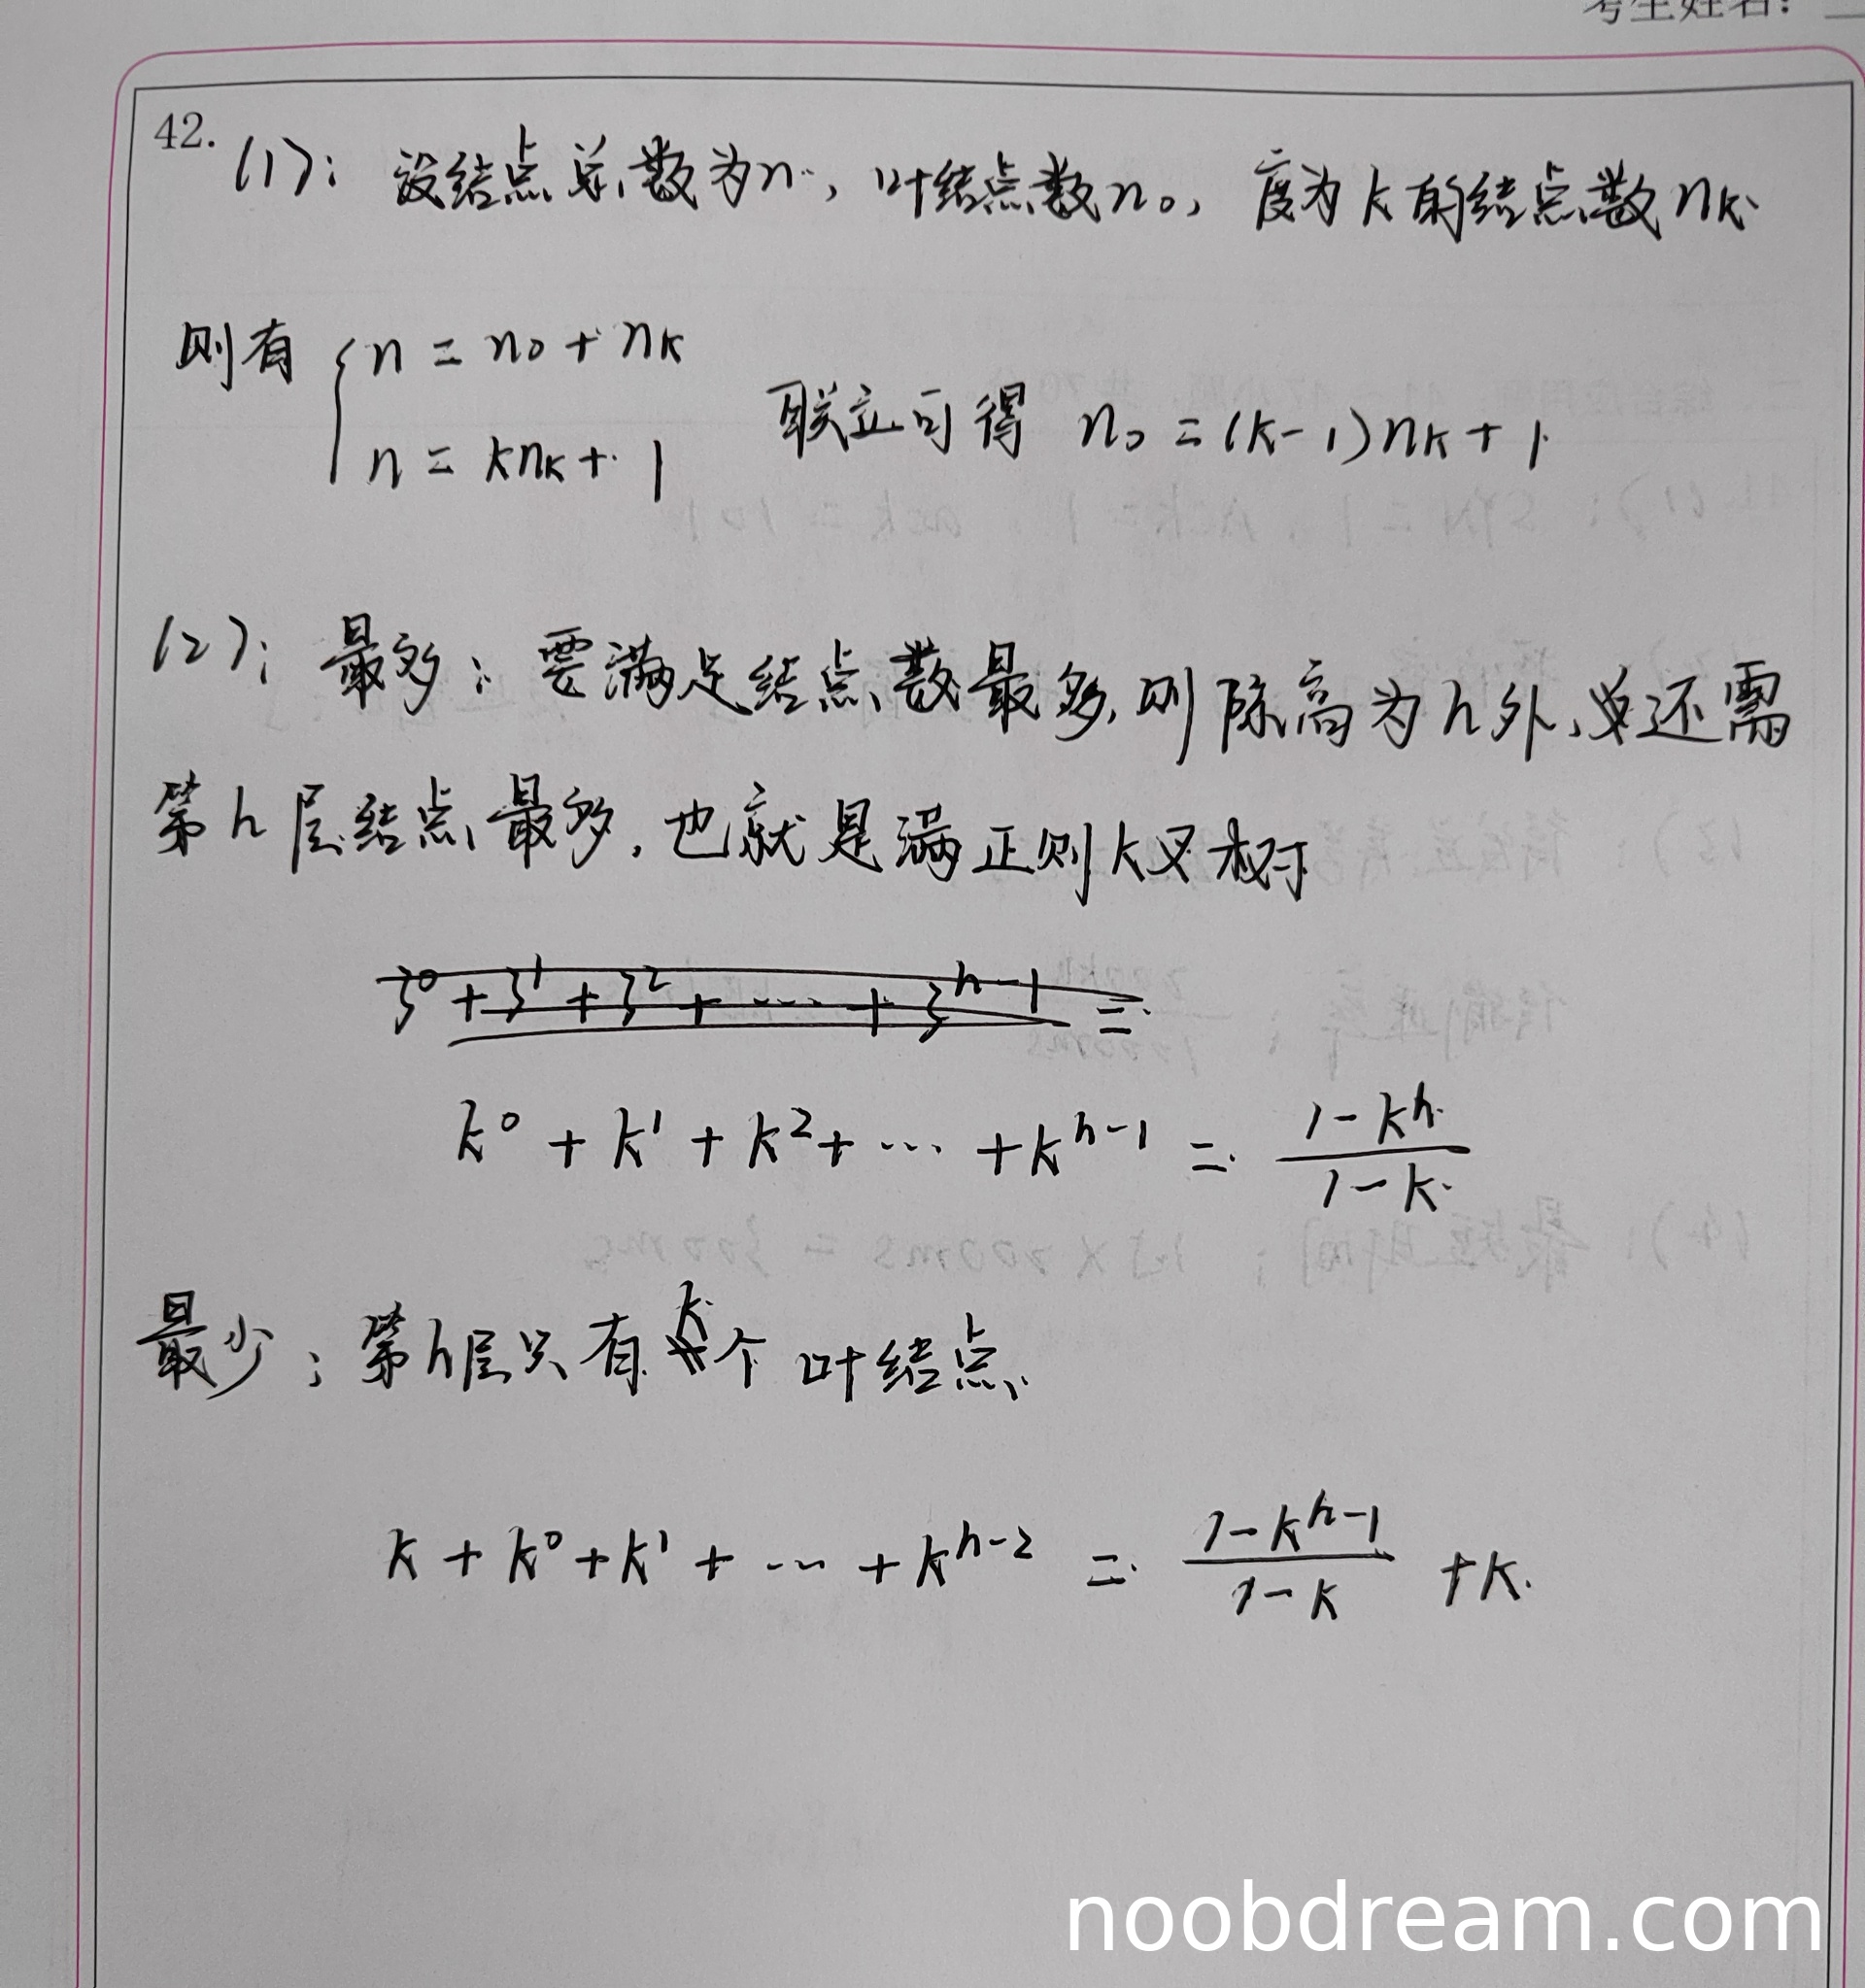 考生姓名:
42. (1): 设结点总数为n, 叶结点数n₀, 度为k的结点数nₖ
则有 { n = n₀ + nₖ
n = knₖ + 1 联立可得 n₀ = (k-1)nₖ + 1
(2): 最多: 要满足结点数最多, 则除高为h外, 还需
第h层结点最多, 也就是满正则k叉树
3⁰ + 3¹ + 3² + ... + 3^(h-1) =
k⁰ + k¹ + k² + ... + k^(h-1) = (1-k^h)/(1-k)
最少: 第h层只有k个叶结点
k + k⁰ + k¹ + ... + k^(h-2) = (1-k^(h-1))/(1-k) + k
noobdream.com